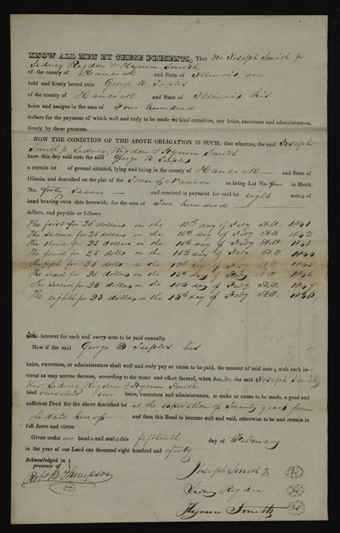 KNOW ALL MEN BY THESE PRESENTS, That We Joseph Smith Jr
Sidney Rigdon & Hyrum Smith
of the county of Hancock and State of Illinois are
held and firmly bound unto George B
of the county of Hancock and State of Illinois his
heirs and assigns in the sum of Four hundred
dollars for the payment of which well and truly to be made we bind ourselves, our heirs, executors and administrators,
firmly by these presents.
NOW THE CONDITION OF THE ABOVE OBLIGATION IS SUCH, that whereas, the said Joseph
Smith Jr Sidney Rigdon & Hyrum Smith
have this day sold unto the said George B
a certain lot of ground situated, lying and being in the county of Hancock and State of
Illinois, and described on the plat of the Town of Nauvoo as being Lot No. four in Block
No. forty Seven and received in payment for said lot eight notes of
hand bearing even date herewith, for the sum of Two hundred
dollars, and payable as follows.
The first for 25 dollars on the 15th day of Feby A.D. 1841
The second for 25 dollars on the 15th day of Feby A.D. 1842
The third for 25 dollars on the 15th day of Feby A.D. 1843
The fourth for 25 dolls on the 15th day of Feby A.D. 1844
The fifth for 25 dolls on the 15th day of Feby A.D. 1845
The sixth for 25 dollars on the 15th day of Feby A.D. 1846
The seventh for 25 dollars on the 15th day of Feby A.D.
The eighth for 25 dollars on the 15th day of Feby A.D.
interest for each and every note to be paid annually.
Now if the said George B his
heirs, executors, or administrators shall well and truly pay or cause to be paid, the amount of said notes, with each interest as may accrue thereon, according to the tenor and effect thereof, when due, we the said Joseph Smith
Jr Sidney Rigdon & Hyrum Smith
bind ourselves our heirs, executors and administrators, to make or cause to be made, a good and
sufficient Deed for the above described lot at the expiration of Twenty years from
the date hereof and then this Bond to become null and void, otherwise to be and remain in
full force and virtue.
Given under our hands and seals this fifteenth day of February
in the year of our Lord one thousand eight hundred and forty
Acknowledged in
presence of
Robt B. Thompson
Joseph Smith Jr
Sidney Rigdon
Hyrum Smith